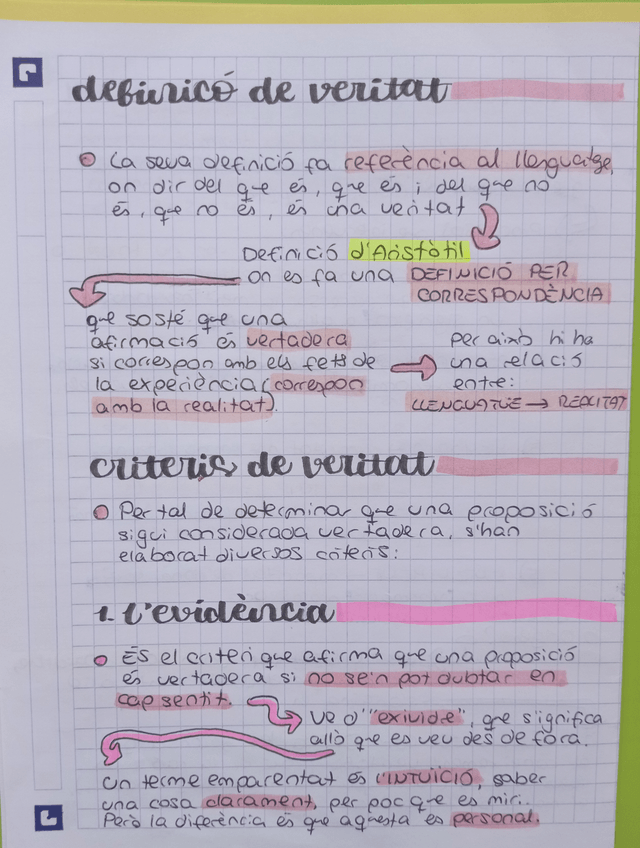 definicó de veritat
La seva definició fa referència al llenguatge,
on dir del que és, que és i del que no
és, que no és, és una veritat
Definició d'Aristòtil
on es fa una DEFINICIÓ PER
CORRESPONDÈNCIA
que sosté que una
afirmació és vertadera
si correspon amb els fets de
la experiència (correspon
amb la realitat).
per això hi ha
una relació
entre:
LLENGUATGE → REALITAT
criteris de veritat
Per tal de determinar que una proposició
sigui considerada vertadera, s'han
elaborat diversos criteris:
1. L'evidència
És el criteri que afirma que una proposició
és vertadera si no se'n pot dubtar en
cap sentit.
ve d'"exivide", que significa
allò que es veu des de fora.
Un terme emparentat és l'INTUÏCIÓ, saber
una cosa clarament, per poc que es miri.
Però la diferència és que aquesta és personal.